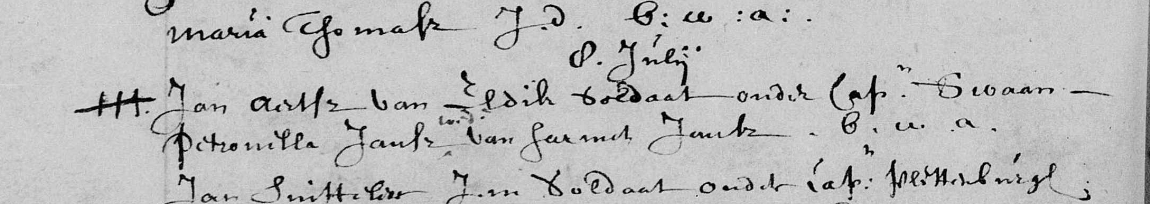 Maria Thomasz J.d. b: w :a:.
8. Julij
Jan Aertsz van Eldik Soldaat onder Cap.n Swaan —
Petronilla Jansz wed. van Harmen Jansz . b. w. a.
Jan J.m Soldaat onder Cap.n Plettenburgh;